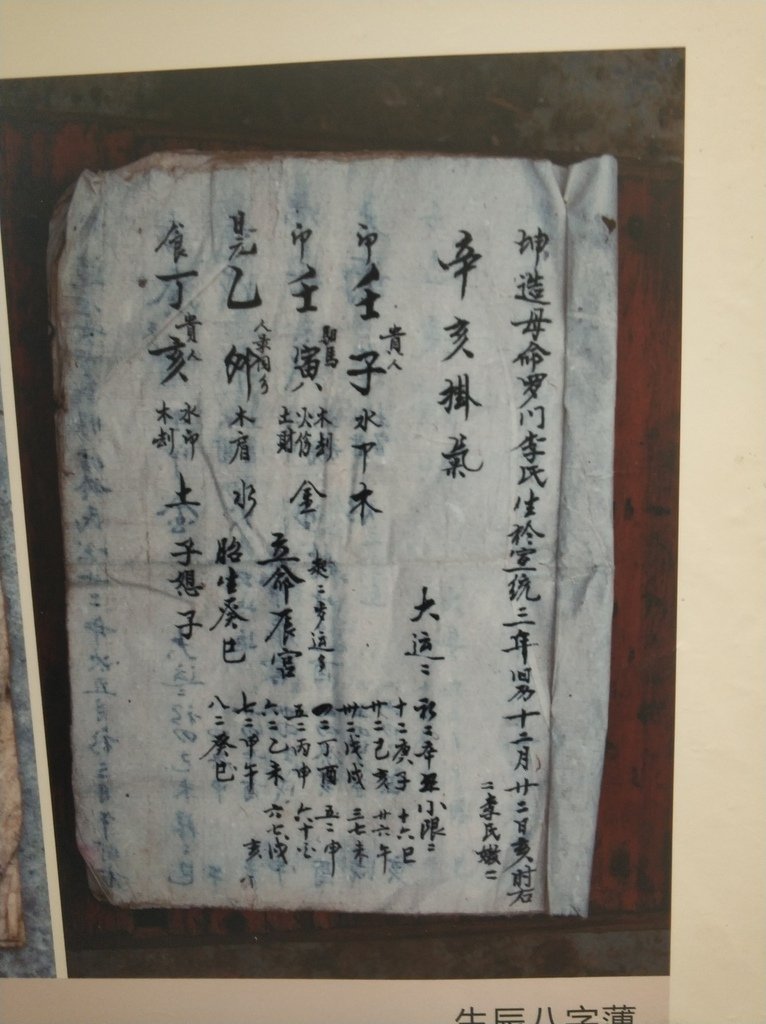 坤造母命罗门李氏生於宣統三年旧历十二月廿二日亥时右
二李氏嫩二
辛亥掛氣
大运二
初二辛丑小限二
十二庚子 十六巳
廿二己亥 廿六午
卅二戊戌 三七未
四二丁酉 五二申
五二丙申 六十
六二乙未 六七戌
七二甲午 亥
八二癸巳
印壬子 貴人 水 木
印壬寅 馹馬 木刦 火伤 土財 金
起二岁运
立命辰宫
日元乙卯 木 水
胎生癸巳
食丁亥 貴人 水印 木刦 土
子想子
生辰八字薄